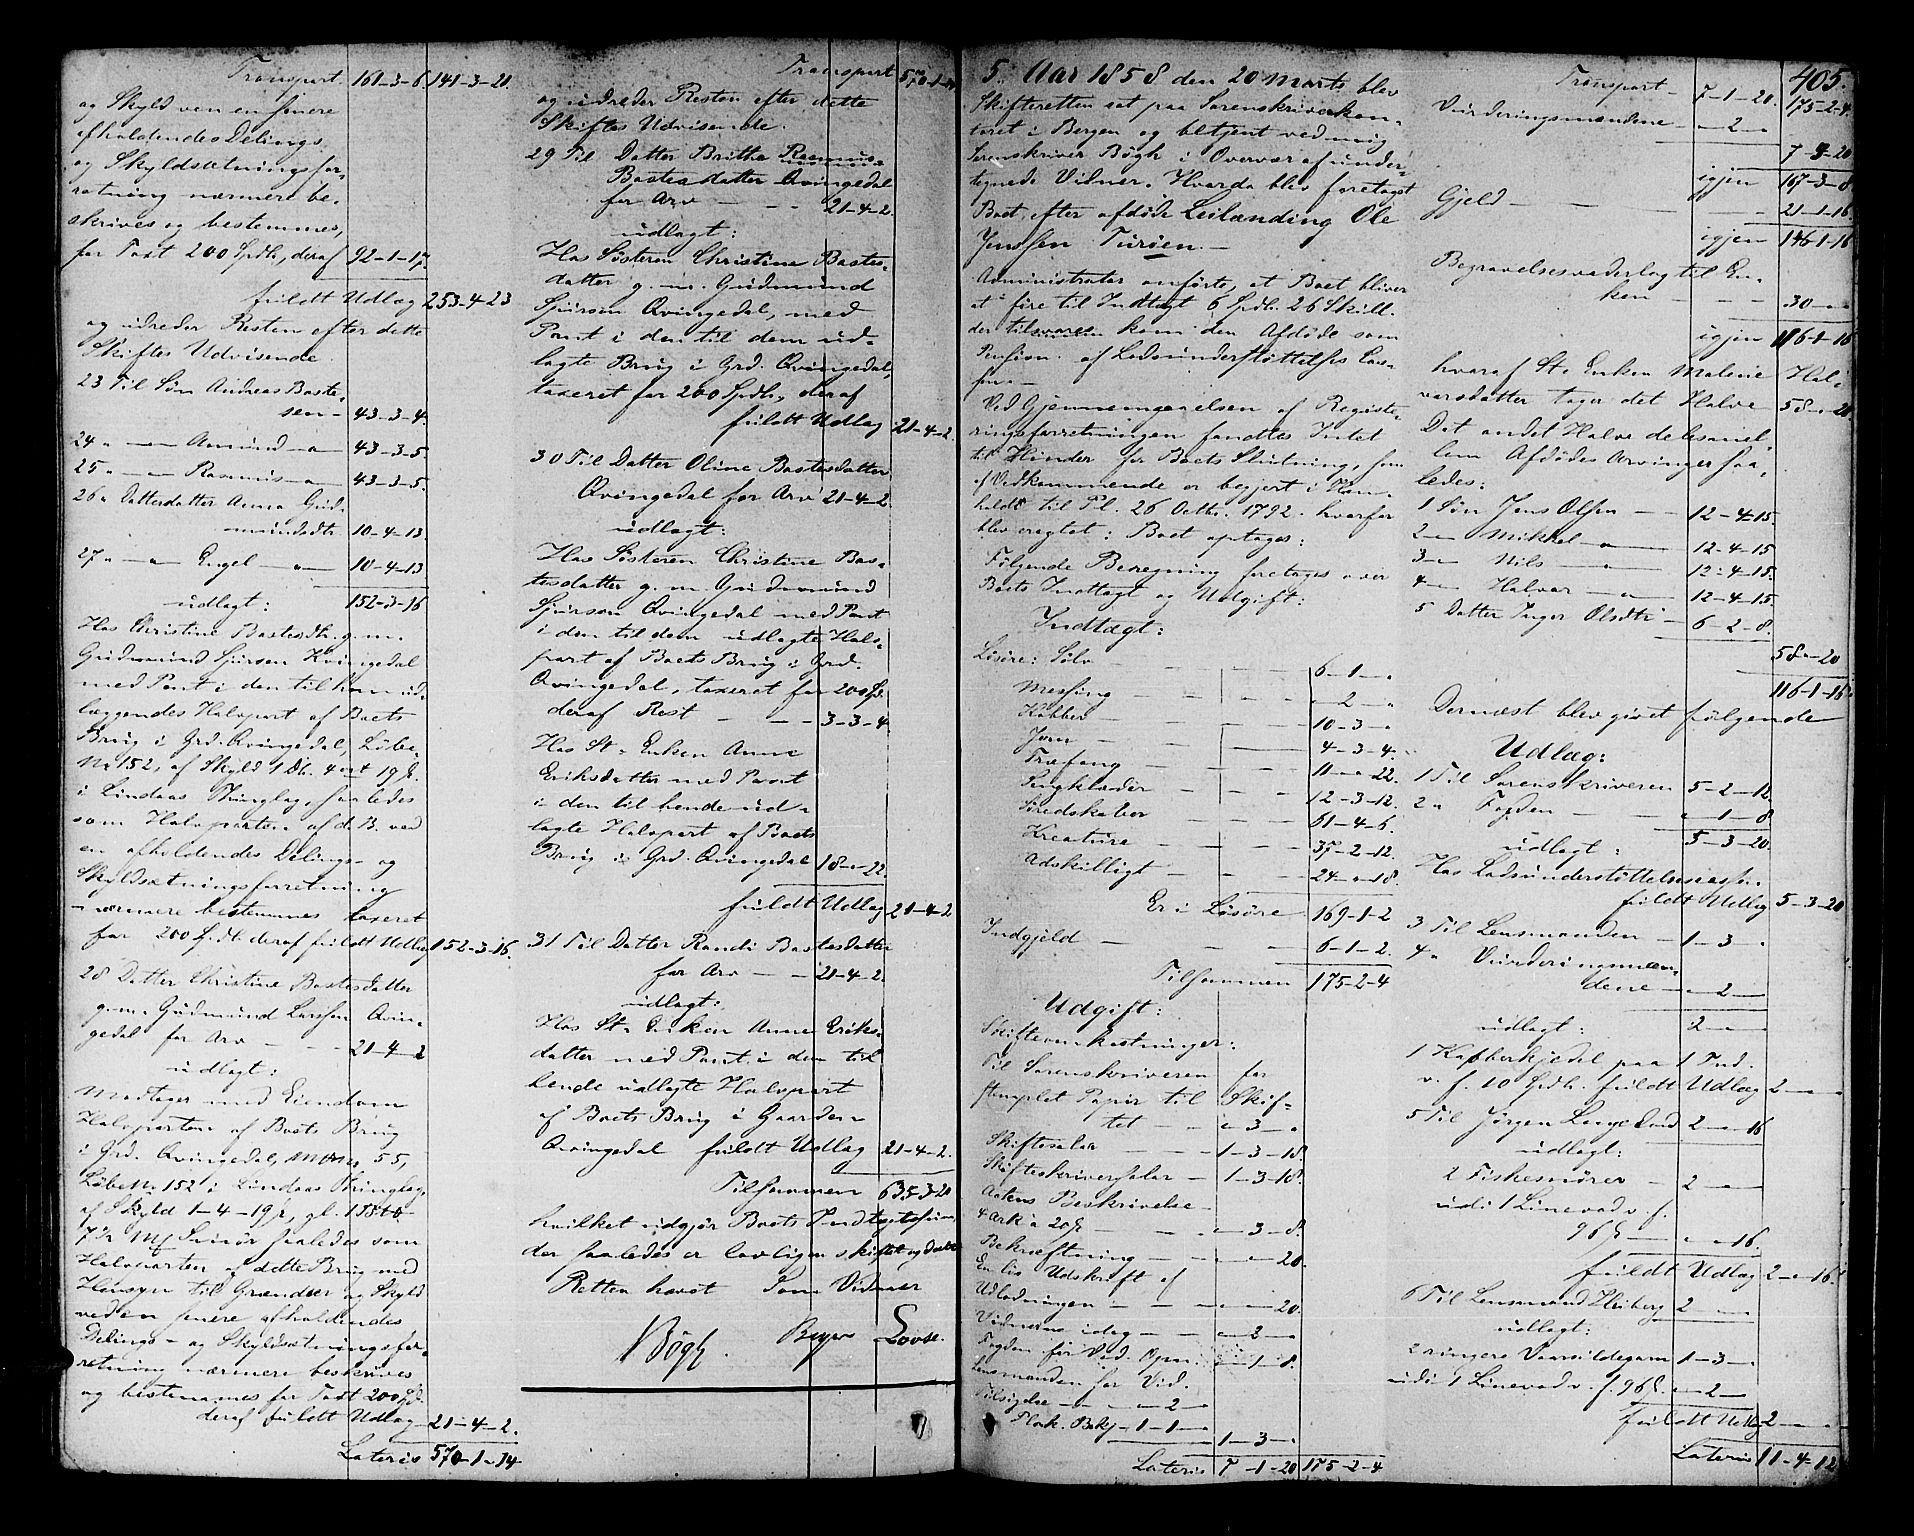 Transport 161-3-6. 141-3-21.
og Skyld ven en senere
afholdendes Delings
og Skyldsætningsfor-
retning nærmere be-
skrives og bestemmes,
for Taxt 200 Spdlr, deraf 92-1-17.
fuldt Udlæg 253-4-23
og udreder Resten efter dette
Skiftes Udvisende.
23 Til Søn Andreas Baste-
sen - 43-3-4.
24 " — Aamund —"— 43-3-5
25 " — Rasmus —"— 43-3-5.
26 " Datterdatter Anna Gud-
mundsdtr 10-4-13
27 " —"— Engel —"— 10-4-13
udlagt: 152-3-16
Hos Christine Bastesdtr. g. m.
Gudmund Sjursen Kvingedal
med Pant i den til ham ud-
læggendes Halvpart af Boets
Brug i Grd. Qvingedal, Løbe-
No 152, af Skyld 1 Dlr. 4 ort 19 s.
i Lindaas Thinglag, saaledes
som Halvparten af d. B. ved
en afholdendes Delings- og
Skyldsætningsforretning
nærmere bestemmes taxeret
for 200 Spdlr. deraf fuldt Udlæg 152-3-16.
28 Datter Christine Bastesdatter
g. m. Gudmund Larssen Qvin-
gedal for Arv - - - 21-4-2
udlagt:
Modtager med Eiendom
Halvparten af Boets Brug
i Grd. Qvingedal, MNo 55,
Løbe No 152 i Lindaas Thinglag,
af Skyld 1-4-19 s, gl.
saaledes som
Halvparten af dette Brug med
Hensyn til Grændser og Skyld
ved en senere afholdendes
Delings- og Skyldsætningsfor-
retning nærmere beskrives
og bestemmes for Taxt 200 Spd.
deraf fuldt Udlæg 21-4-2.
Lateris 570-1-14
Transport 570-1-14
og udreder Resten efter dette
Skiftes Udvisende.
29 Til Datter Britha Rasmus-
Bastesdatter Qvingedal
for Arv - - - 21-4-2.
udlagt:
Hos Søsteren Christine Bastes-
datter g. m. Gudmund
Sjursen Qvingedal, med
Pant i den til dem ud-
lagte Brug i Grd. Qvingedal,
taxeret for 200 Spdlr, deraf
fuldt Udlæg 21-4-2.
30 Til Datter Oline Bastesdatter
Qvingedal for Arv 21-4-2.
udlagt:
Hos Søsteren Christine Bas-
tesdatter g. m. Gudmund
Sjursen Qvingedal med Pant
i den til dem udlagte Halv-
part af Boets Brug i Grd.
Qvingedal, taxeret for 200 Sp.
deraf Rest - - - 3-3-4
Hos St. Enken Anne
Eriksdatter med Pant
i den til hende ud-
lagte Halvpart af Boets
Brug i Grd. Qvingedal 18-"-22
fuldt Udlæg 21-4-2
31 Til Datter Randi Bastesdatter
for Arv - - 21-4-2.
udlagt:
Hos St. Enken Anne Eriks-
datter med Pant i den til
hende udlagte Halvpart
af Boets Brug i Gaarden
Qvingedal fuldt Udlæg 21-4-2.
Tilsammen 635-3-20
hvilket udgjør Boets Indtægtssum,
der saaledes er lovligen skiftet og deelt
Retten hævet Som Vidner
Bøgh. Beyer Lovse.
405.
5. Aar 1858 den 20 Marts blev
Skifteretten sat paa Sorenskriverkon-
toret i Bergen og betjent ved mig
Sorenskriver Bøgh i Overvær af under-
tegnede Vidner. Hvorda blev foretaget
Boet efter afdøde Leilænding Ole
Jenssen Turøen.-
Administrator anførte, at Boet bliver
at føre til Indtægt 6 Spdlr. 26 Skill.
der tilkom den Afdøde som
Pension af Lodsunderstøttelses Cas-
sen.-
Ved Gjennemgaaelsen af Registe-
ringsforretningen fandtes Intet
til Hinder for Boets Slutning, som
af Vedkommende er begjert i Hen-
holdt til Pl. 26 Octbr. 1792. hvorfor
blev eragtet: Boet optages:
Følgende Beregning foretages over
Boets Indtægt og Udgift:
Indtægt:
Løsøre: Sølv - - - 6-1-"
Messing - - - "-2-"
Kobber - - - 10-3-"
Jern - - - 4-3-4.
Træfang - - - 11-"-22.
Sengklæder - - - 12-3-12.
Søredskaber - - - 61-4-6.
Kreature - - - 37-2-12.
Adskilligt - - - 24-"-18.
Er i Løsøre 169-1-2
Indgjeld - - - 6-1-2.
Tilsammen 175-2-4
Udgift:
Skifteomkostninger:
Til Sorenskriveren for
stemplet Papir til Skif-
tet - - "-3-"
Skiftesalær - 1-3-18.
Skifteskriversalær - 1-3-18.
Actens Beskrivelse
4 Ark a 20 s - - "-3-8.
Bekræftning - - "-"-20.
En lig Udskrift af
Udlodningen - - - "-"-20.
Vidnerne idag - - "-2-"
Fogden for Vid. Opn. "-1-8.
Lensmanden for Vid.
Tilsigelse - - "-2-"
Flork. Bekj - 1-1-"
1-3-"
Lateris 7-1-20 175-2-4
Transport - 7-1-20. 175-2-4.
Vurderingsmændene - "-2-"
7-3-20
igjen 167-3-8
Gjeld - - - 21-1-16.
igjen 146-1-16
Begravelsesvederlag til En-
ken - - - 30-"-"
igjen 116-1-16
hvoraf St. Enken Malene Hal-
vorsdatter tager det Halve 58-"-20.
Det andet Halve deles mel-
lem Afdødes Arvinger saa-
ledes:
1 Søn Jens Olsen - - 12-4-15.
2 —"— Mikkel —"— 12-4-15
3 —"— Nils —"— 12-4-15.
4 —"— Halvor —"— 12-4-15.
5 Datter Inger Olsdtr - 6-2-8.
58-"-20
116-1-16.
Dernæst blev givet følgende
Udlæg:
1 Til Sorenskriveren 5-2-12.
2 " Fogden - - "-1-8
udlagt: 5-3-20.
Hos Lodsunderstøttelsescassen
fuldt Udlæg 5-3-20
3 Til Lensmanden - 1-3-"
4 " Vurderingsmæn-
dene - "-2-"
udlagt: 2-"-"
1 Kobberkjedel paa 1 Tnd.
v. f. 10 Spdlr. fuldt Udlæg 2-"-"
5 Til Jørgen Lund 2-"-16
udlagt:
2 Fiskesnører - 2-"-"
udi 1 Linevad v. f.
96 s - "-"-16.
fuldt Udlæg 2-"-16.
6 Til Lensmand Heiberg 2-"-"
udlagt:
2 ringere Vaarsildegarn 1-3-"
udi 1 Linevad v. f. 96 s. "-2-"
fuldt Udlæg 2-"-"
Lateris 11-4-12